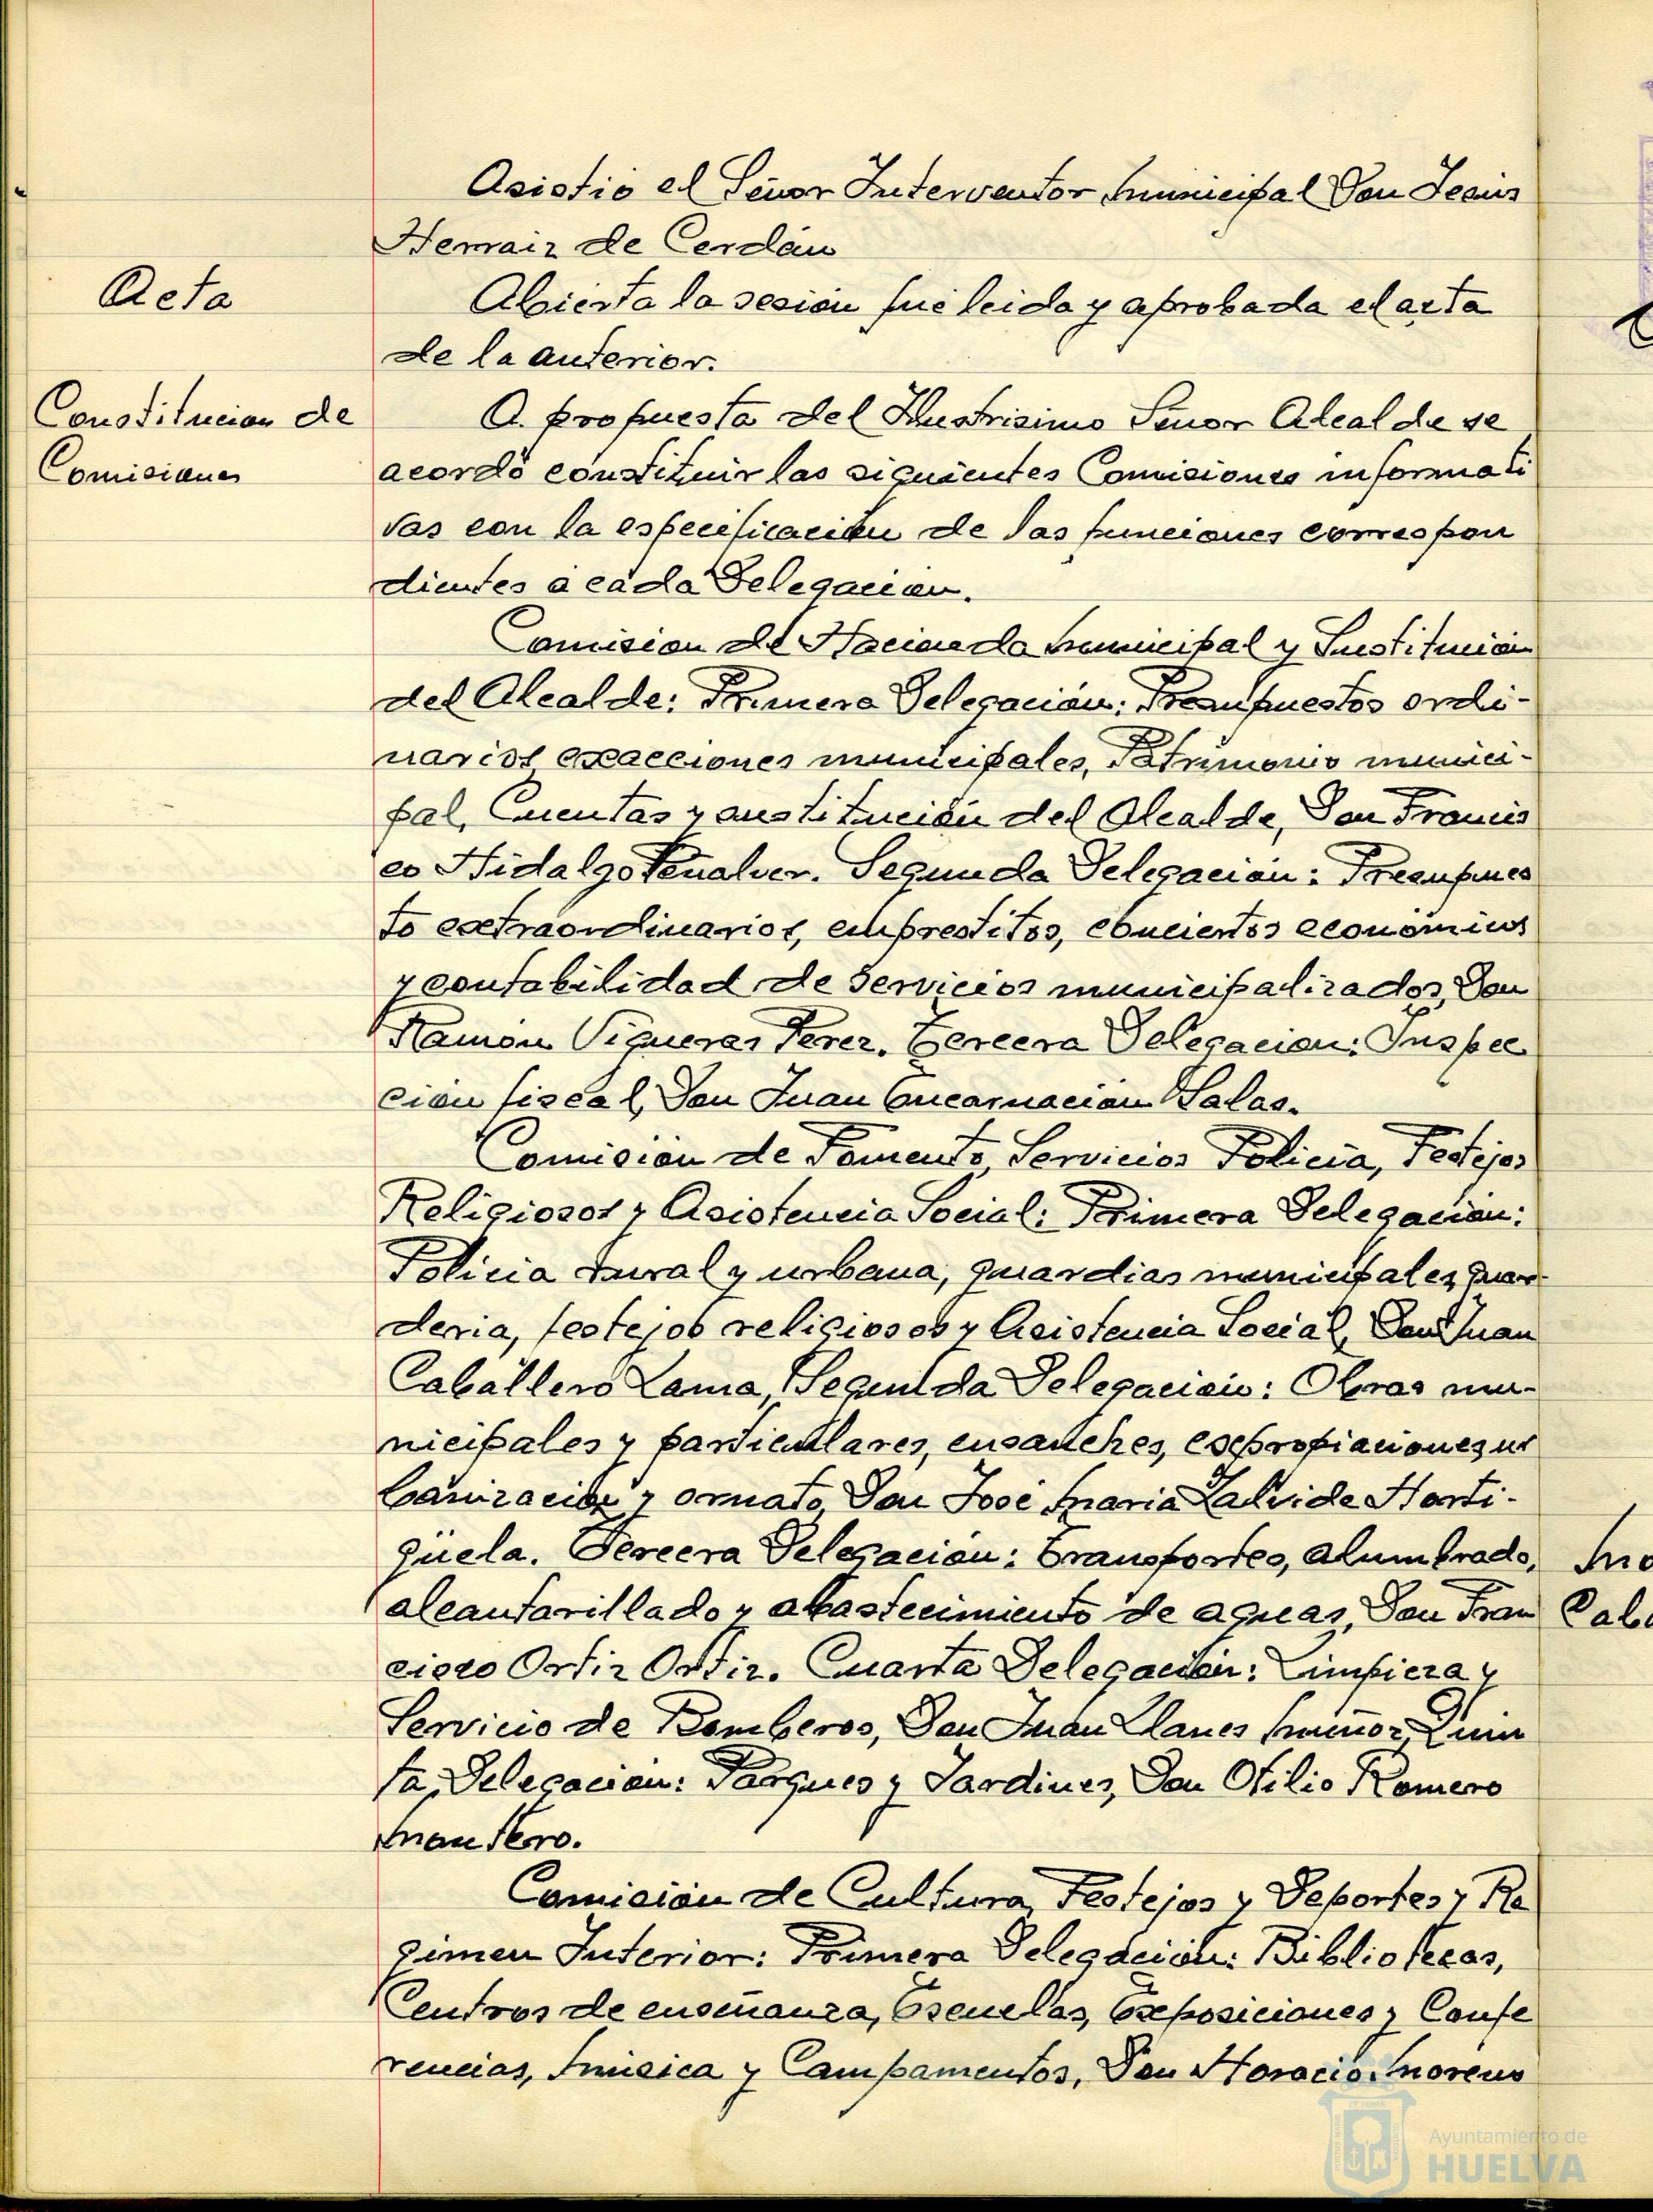 Asistió el Señor Interventor Municipal Don Jesús
Herraiz de Cerdán
Acta
Abierta la sesión fué leida y aprobada el acta
de la anterior.
Constitucion de
Comisiones
A propuesta del Ilustrisimo Señor Alcalde se
acordó constituir las siguientes Comisiones informati
vas con la especificación de las funciones correspon
dientes a cada Delegación.
Comision de Hacienda Municipal y Sustitución
del Alcalde: Primera Delegación: Presupuestos ordi-
narios, exacciones municipales, Patrimonio munici-
pal, Cuentas y sustitución del Alcalde, Don Francis
co Hidalgo Peñalver. Segunda Delegación: Presupues
to extraordinarios, emprestitos, conciertos económicos
y contabilidad de servicios municipalizados, Don
Ramón Vigueras Perez. Tercera Delegacion: Inspec
ción fiscal, Don Juan Encarnación Salas.
Comisión de Fomento, Servicios Policía, Festejos
Religiosos y Asistencia Social: Primera Delegación:
Policia rural y urbana, guardias municipales, guar-
deria, festejos religiosos y Asistencia Social, Don Juan
Caballero Lama, Segunda Delegación: Obras mu-
nicipales y particulares, ensanches, expropiaciones, ur
banización y ornato, Don José Maria Zalvide Horti-
güela. Tercera Delegación: Transportes, alumbrado,
alcantarillado y abastecimiento de aguas, Don Fran
cisco Ortiz Ortiz. Cuarta Delegación: Limpieza y
Servicio de Bomberos, Don Juan Llanes Muñoz, Quin
ta, Delegación: Parques y Jardines, Don Otilio Romero
Montero.
Comisión de Cultura, Festejos y Deportes y Re
gimen Interior: Primera Delegación: Bibliotecas,
Centros de enseñanza, Escuelas, Exposiciones y Confe
rencias, Música y Campamentos, Don Horacio Moreno
Ayuntamiento de
HUELVA